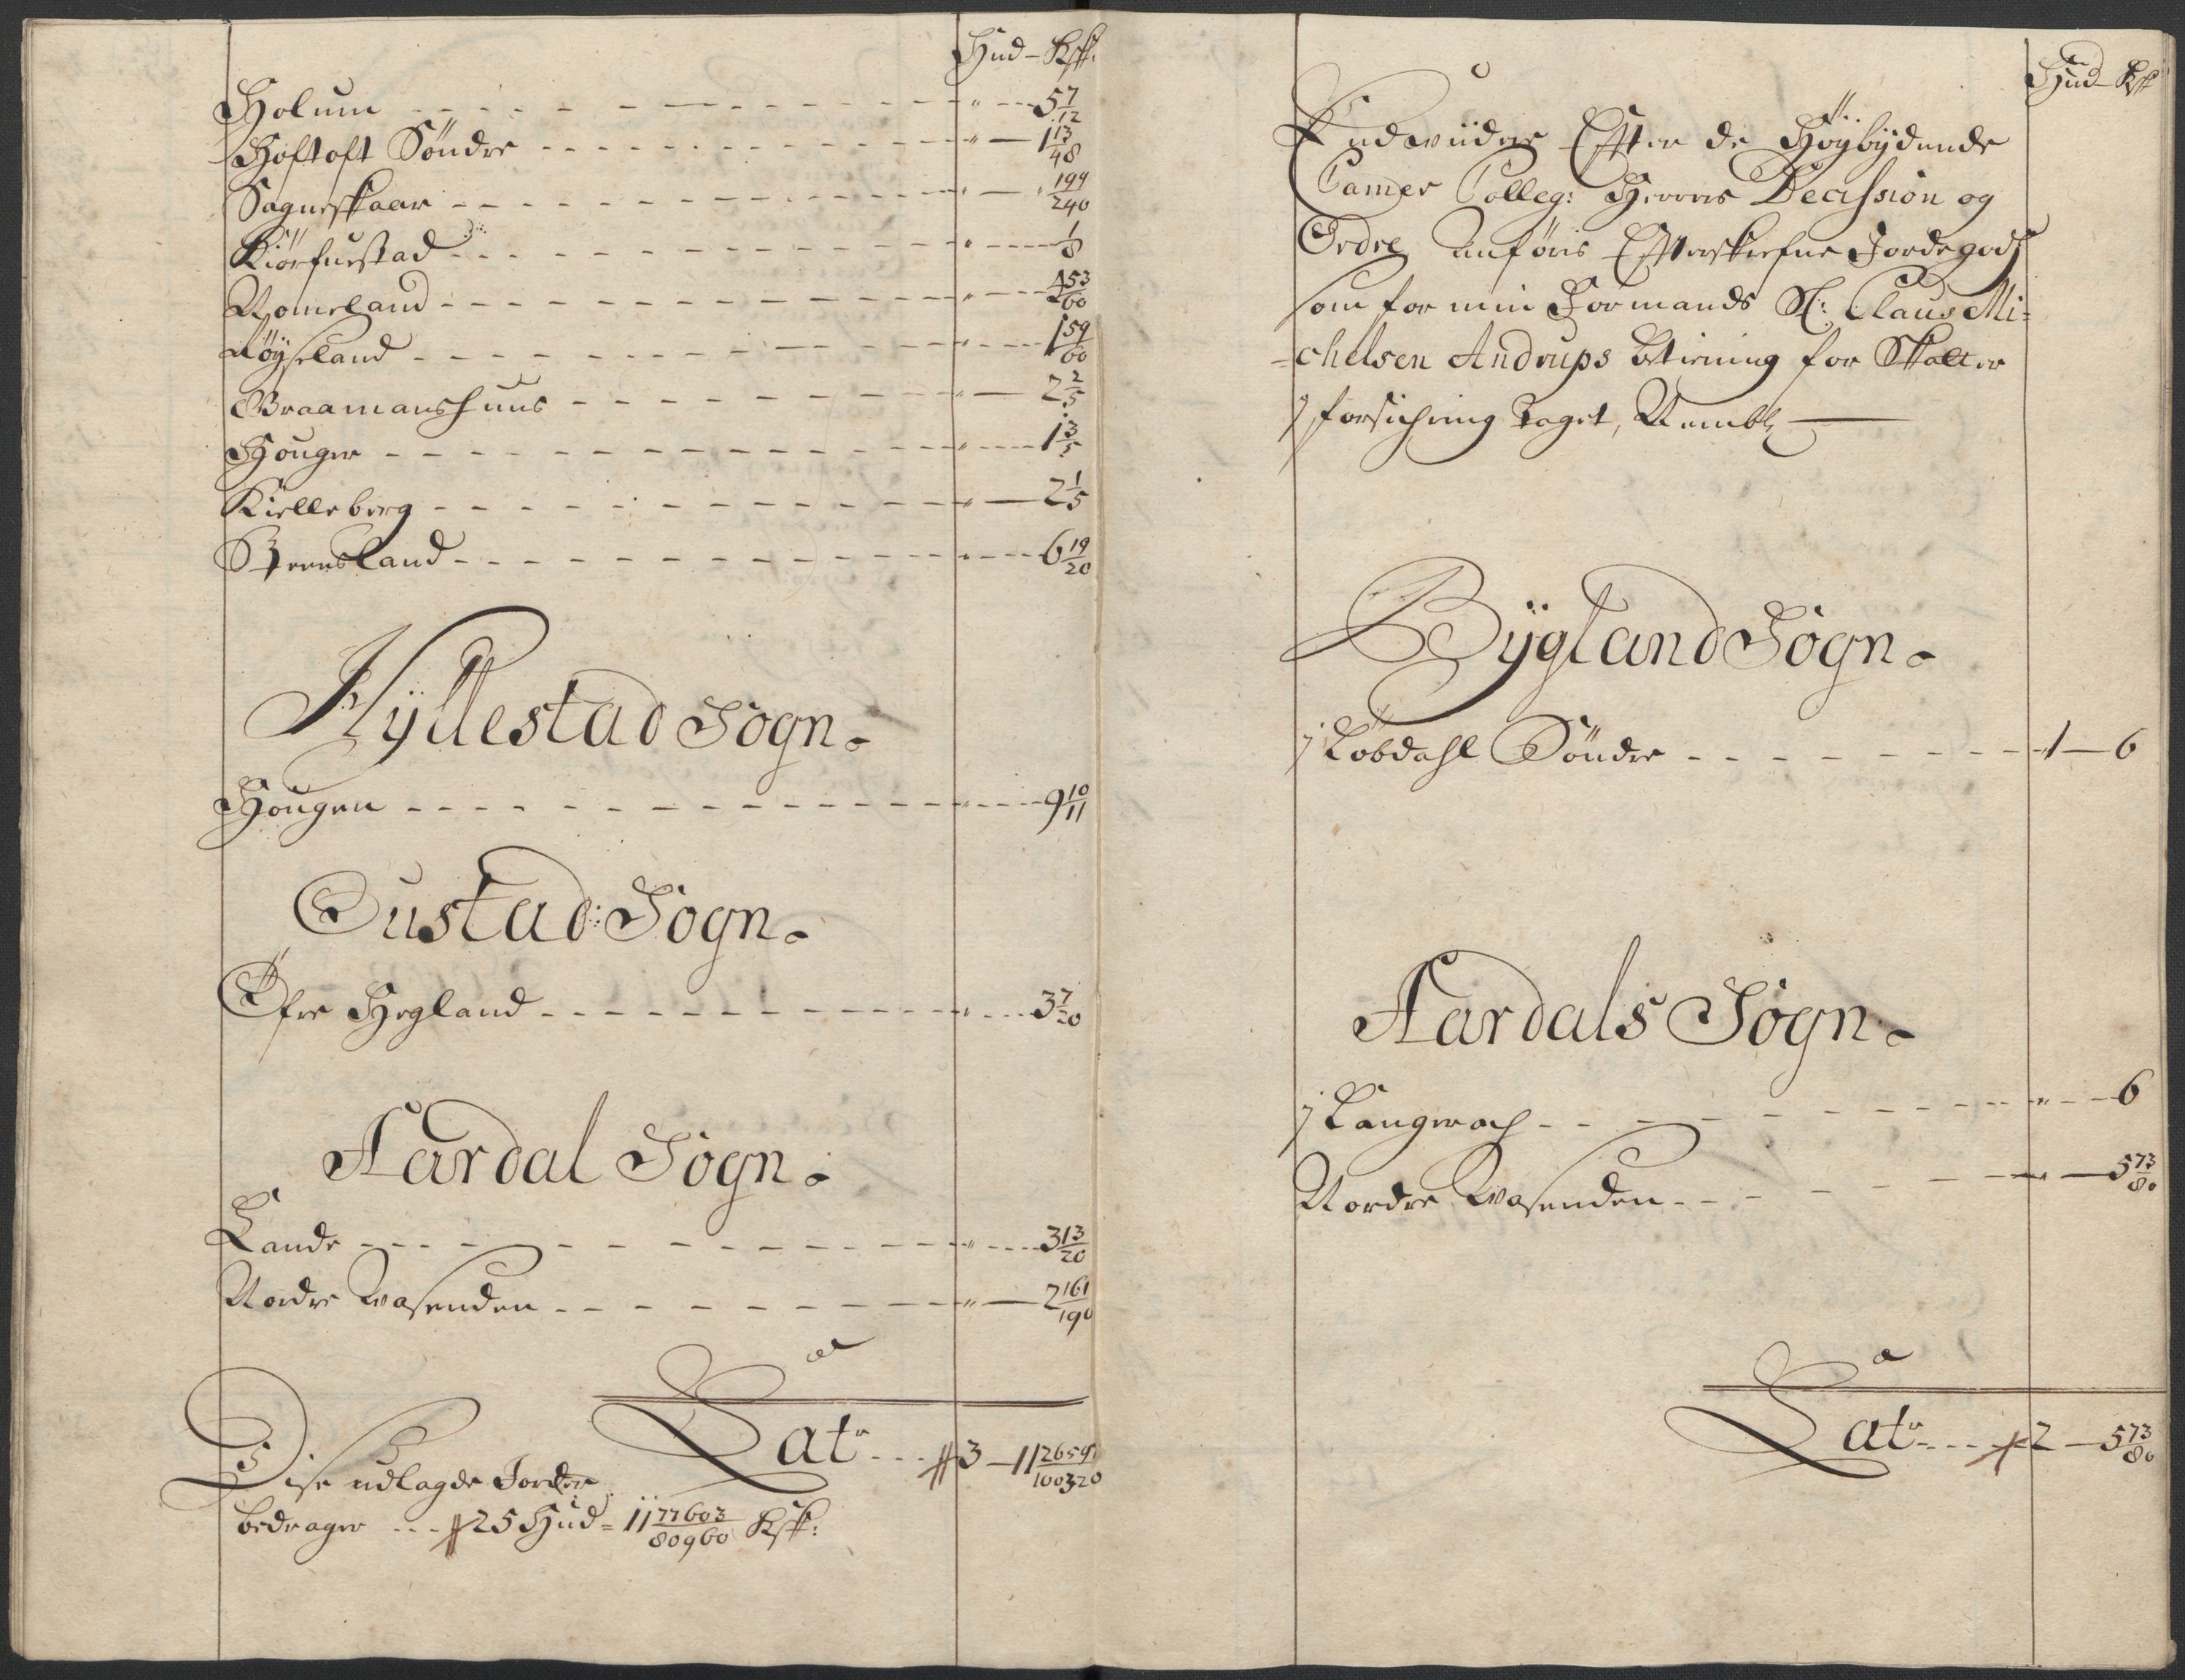 Hud – Ksk:
Holum - - - " - - 5 7/12
Hoftoft Söndre - - - " — 1 13/48
Sagneskaar - - - " — 199/240
Kiörfuestad - - - " - - 1/8
Romeland - - - " - - 53/60
Röÿseland - - - " - - 1 59/60
Braamanshuus - - - " — 2 2/5
Houger - - - " - - 1 3/5
Kielleberg - - - " — 2 1/5
Steensland - - - " - - 6 19/20
Hÿllestad Sogn.
Hougen - - - " - - 9 10/11
Oustad: Sogn.
Öfre Hegland - - - " - - 3 7/20
Aardal Sogn.
Lande - - - " - - 3 13/20
Nordre Waasenden - - - " — 2 161/190
Lat:r - - - 3 – 11 26591/100320
Disse udlagde Jorder
bedrager - - - 25 Hud = 11 77603/80960 Ksk:
Hud – Ksk
Endwiidere Efter de Höÿbÿdende
Camer Colleg: Herrers Decission og
Ordre Anföris Efterskrefne Jordegods
som for min Formands Sl: Claus Mi=
=chelsen Andrups betiening for Skatter
j forsichring taget, Nembl: —
Bÿgland Sogn.
j Löbdahl Söndre - - - 1 — 6
Aardals Sogn.
j Langerach - - - " - - 6
Nordre Waasenden - - - " — 5 73/80
Lat:r - - - 2 – 5 73/80